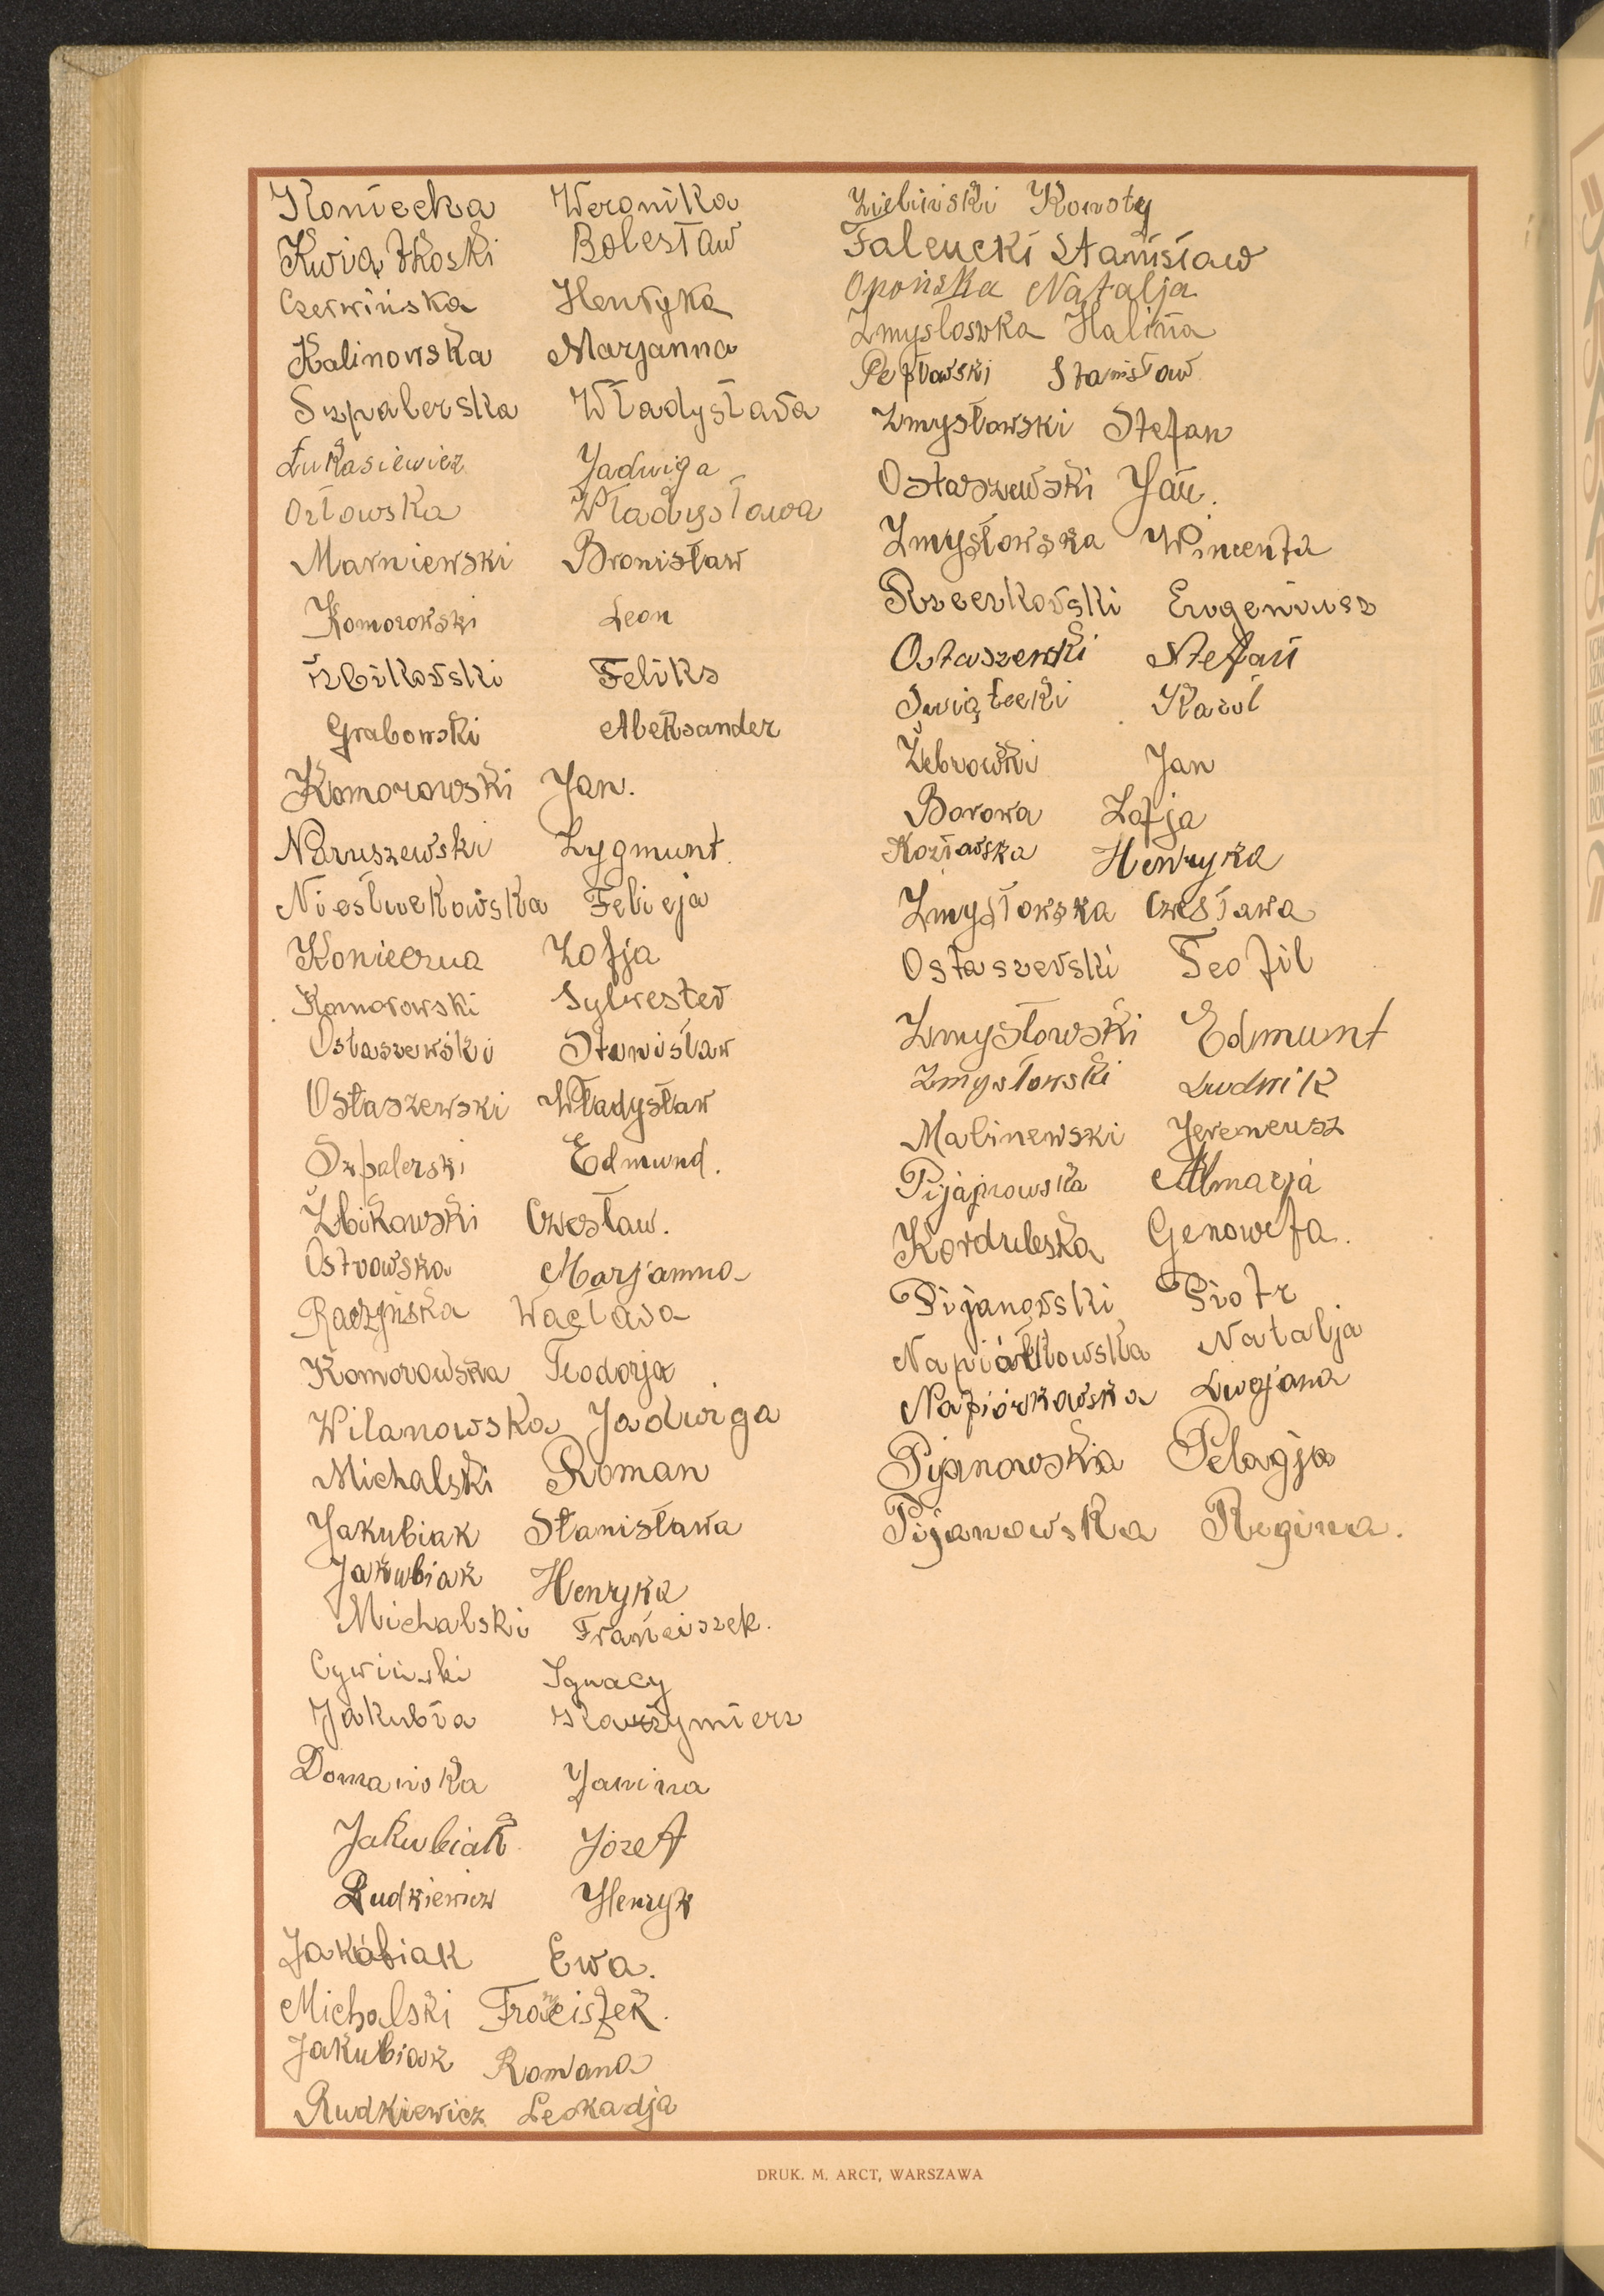 Koniecka Weronika
Kwiątkoski Bolesław
Czerwińska Henryka
Kalinowska Marjanna
Szpalerska Władysława
Łukasiewicz Jadwiga
Orłowska Władysława
Marniewski Bronisław
Komorowski Leon
Żbikowski Feliks
Grabowski Aleksander
Komorowski Jan.
Naruszewski Zygmunt.
Felicja
Konieczna Zofja
Komorowski Sylwester
Ostaszewski Stanisław
Ostaszewski Władysław
Szpalerski Edmund.
Żbikowski Czesław.
Ostrowska Marjanna
Raczyńska Wacława
Komorowska Teodorja
Wilanowska Jadwiga
Michalski Roman
Jakubiak Stanisława
Jakubiak Henryka
Michalski Franciszek.
Cywiński Ignacy
Jakubia Kazzymierz
Domańska Janina
Jakubiak Józef
Rudkiewicz Henryk
Jakóbiak Ewa.
Michalski Franciszek.
Jakubiak Romana
Rudkiewicz Leokadja
Zieliński
Falencki Stanisław
Opońska Natalja
Zmysłoswka Halina
Pepłowski Stanisław
Zmysłowski Stefan
Ostaszewski Jan.
Zmysłowska Wincenta
Rzeczkowski Eugeniusz
Ostaszewski Stefan
Świątecki Karol
Żebrowski Jan
Borowa Zofja
Kozłowska Henryka
Zmysłowska Czesława
Ostaszewski Teofil
Zmysłowski Edmunt
Zmysłowski Ludwik
Malinewski Jereneusz
Pijanowska Almarja
Kordulska Genowefa.
Pijanowski Piotr
Napiórkowska Natalja
Napiórkowska Lucjana
Pijanowska Pelagja
Pijanowska Regina.
DRUK. M. ARCT, WARSZAWA